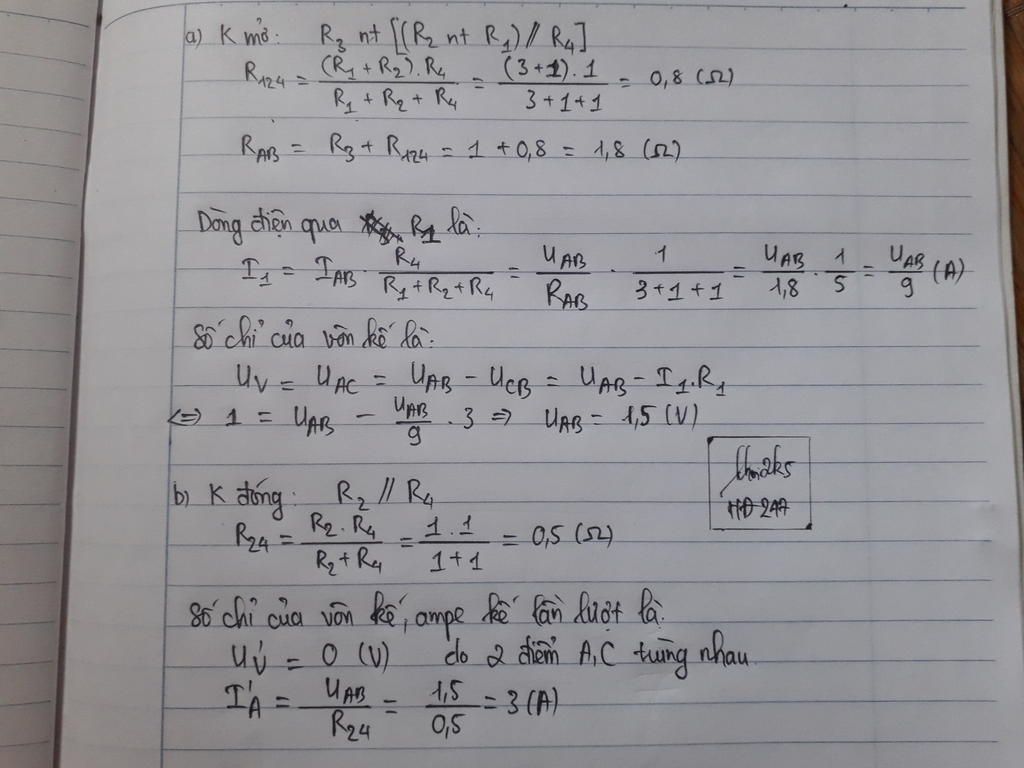 a) K mở: R₃ nt [(R₂ nt R₁) // R₄]
R₁₂₄ = (R₁ + R₂).R₄ / (R₁ + R₂ + R₄) = (3+1).1 / (3+1+1) = 0,8 (Ω)
R_AB = R₃ + R₁₂₄ = 1 + 0,8 = 1,8 (Ω)
Dòng điện qua R₁ là:
I₁ = I_AB . R₄ / (R₁+R₂+R₄) = U_AB / R_AB . 1 / (3+1+1) = U_AB / 1,8 . 1/5 = U_AB / 9 (A)
Số chỉ của vôn kế là:
U_V = U_AC = U_AB - U_CB = U_AB - I₁.R₁
<=> 1 = U_AB - U_AB / 9 . 3 => U_AB = 1,5 (V)
b) K đóng: R₂ // R₄
R₂₄ = R₂.R₄ / (R₂+R₄) = 1.1 / (1+1) = 0,5 (Ω)
Số chỉ của vôn kế, ampe kế lần lượt là:
U'_V = 0 (V) do 2 điểm A,C trùng nhau
I'_A = U_AB / R₂₄ = 1,5 / 0,5 = 3 (A)